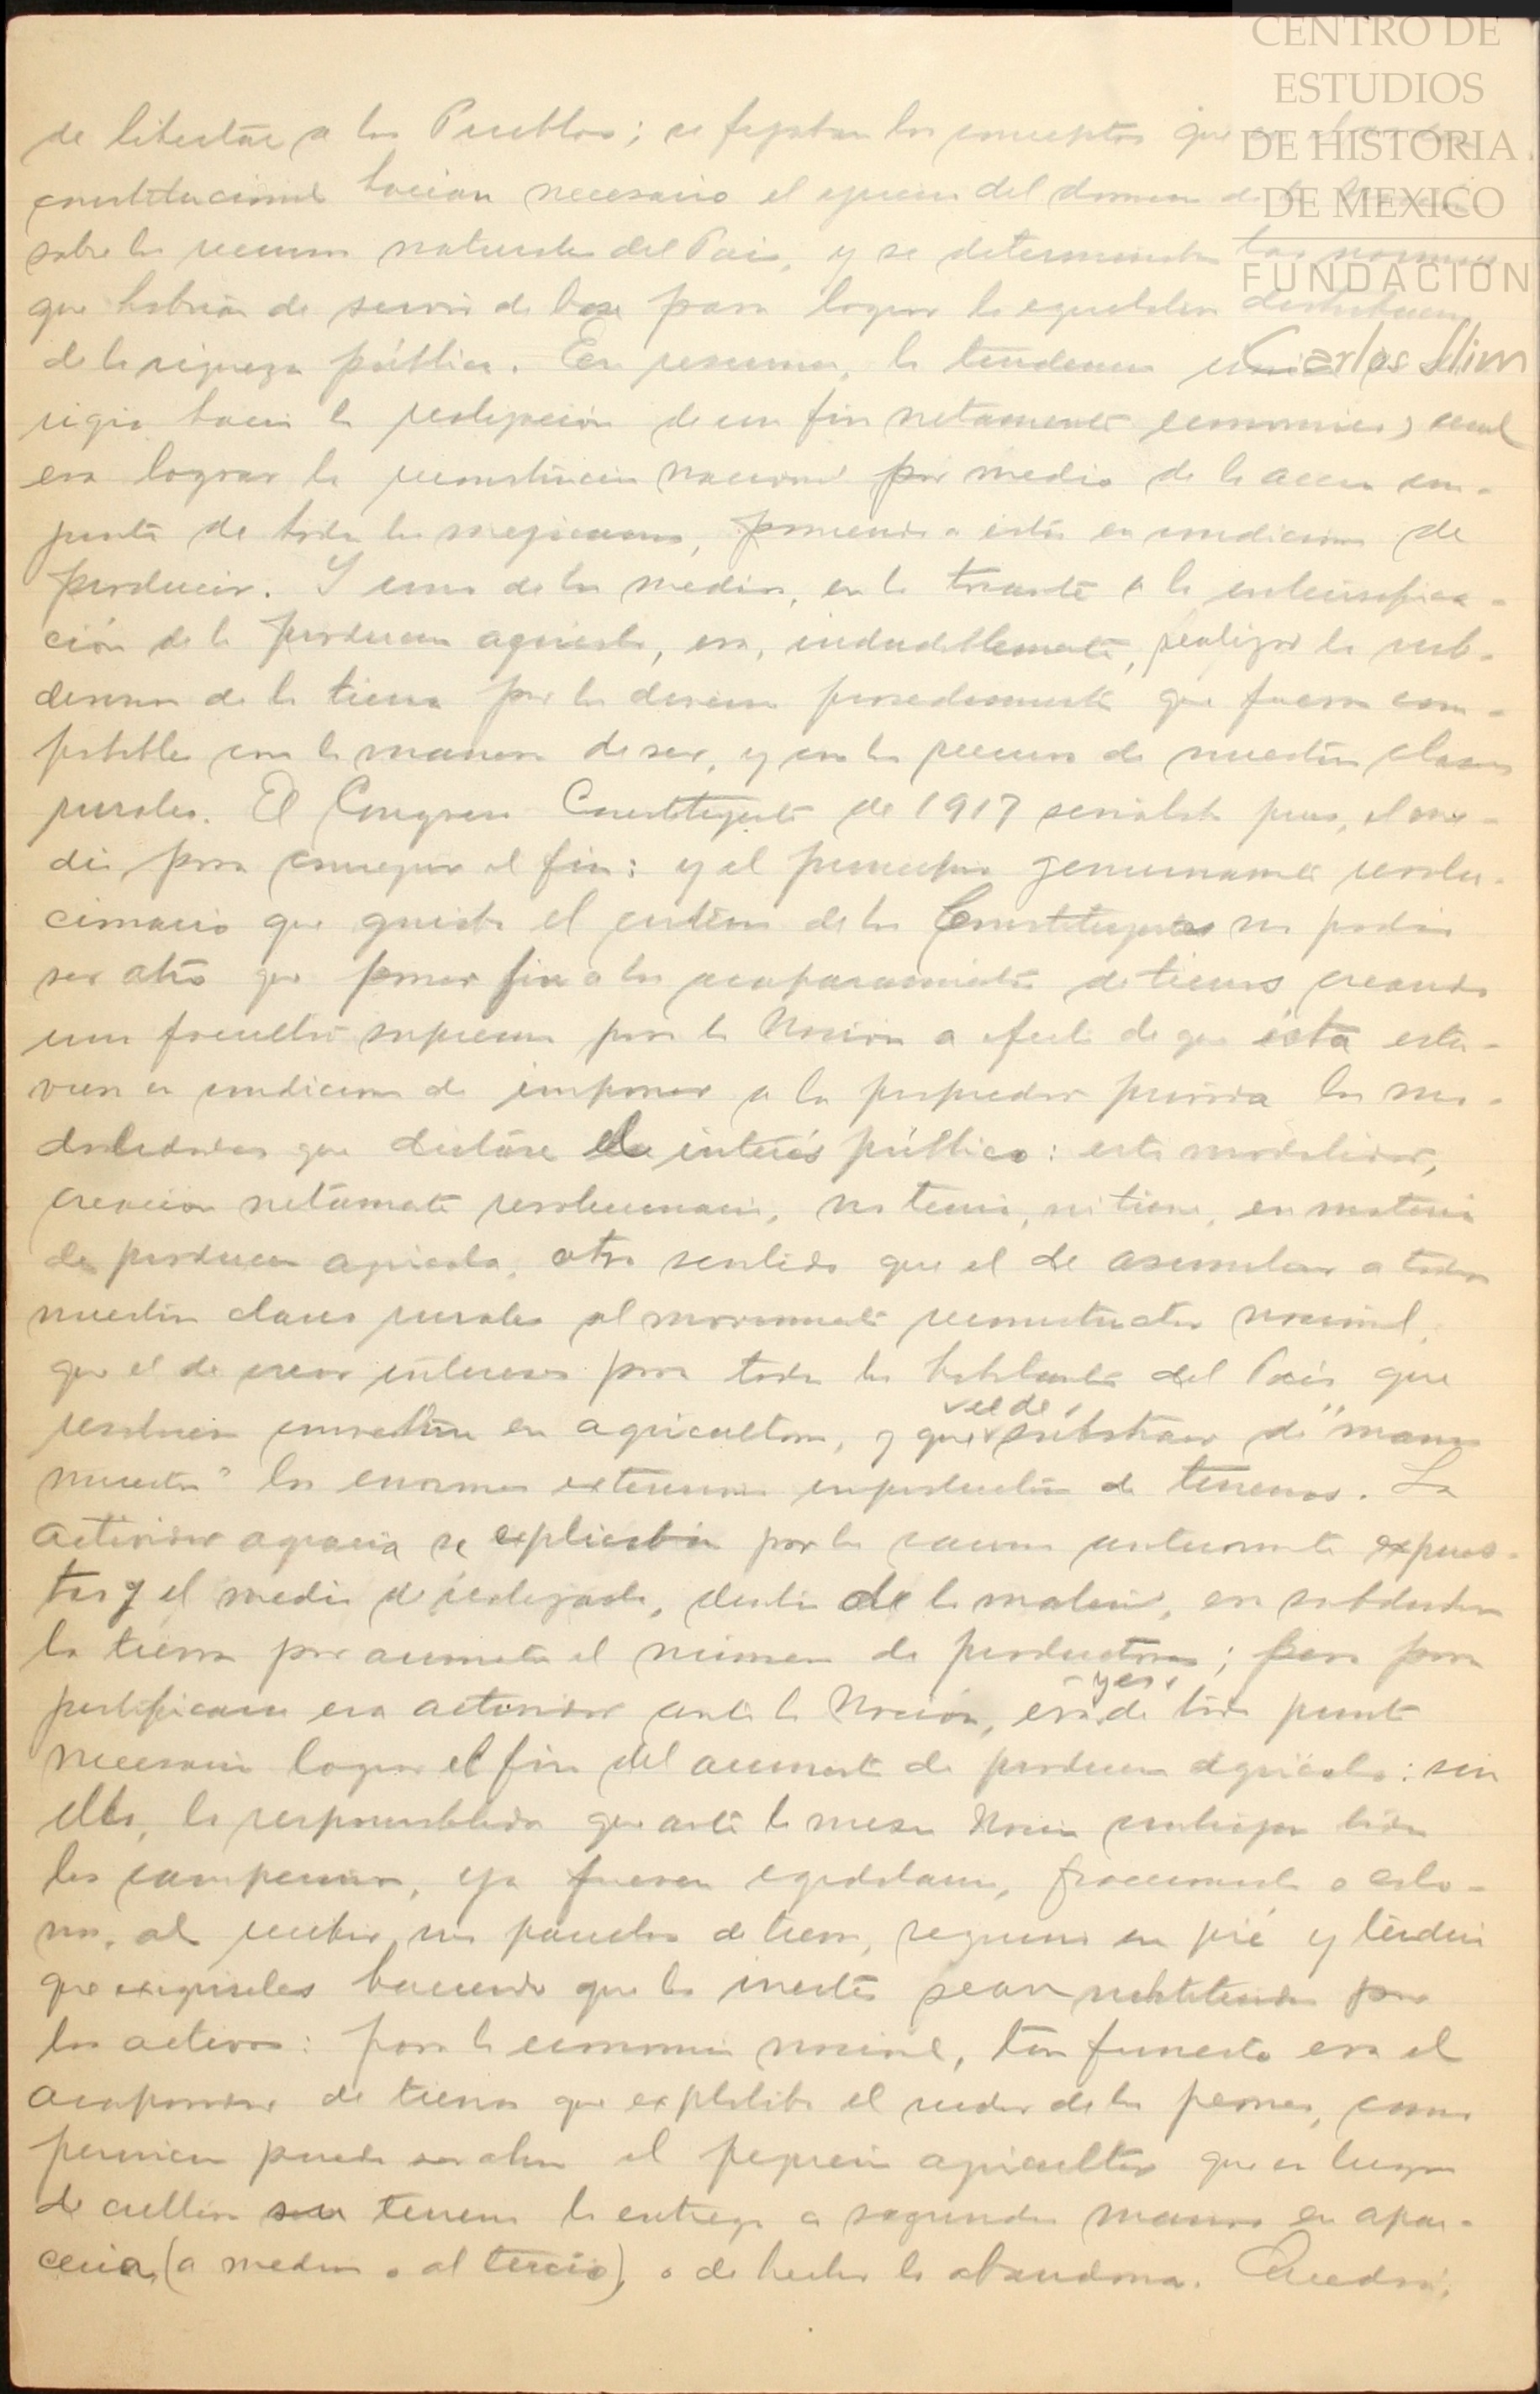 CENTRO DE
ESTUDIOS
DE HISTORIA
DE MEXICO
FUNDACIÓN
Carlos Slim
de libertar a los Pueblos; se fijaban los conceptos que
constitucional hacían necesario el ejercicio del dominio de la
sobre los recursos naturales del País, y se determinaban las normas
que habrían de servir de base para lograr la equitativa distribucion
de la riqueza pública. En resumen, la tendencia
rigia hacia la realizacion de un fin netamente economico, cual
era lograr la reconstruccion nacional por medio de la accion con-
junta de todos los mexicanos, poniendo a estos en condiciones de
producir. Y uno de los medios, en lo tocante a la intensifica-
ción de la produccion agricola, era, indudablemente, realizar la sub-
division de la tierra por los diversos procedimientos que fueran com-
patibles con la manera de ser, y con los recursos de nuestras clases
rurales. El Congreso Constituyente de 1917 señalaba pues, el me-
dio para conseguir el fin: y el principio genuinamente revolu-
cionario que guiaba el criterio de los Constituyentes no podia
ser otro que poner fin a los acaparamientos de tierras creando
una facultad suprema para la Nacion a efecto de que ésta estu-
viera en condiciones de imponer a la propiedad privada las mo-
dalidades que dictare el interés público: esta modalidad,
creacion netamente revolucionaria, no tenia, ni tiene, en materia
de produccion agricola, otro sentido que el de asimilar a todas
nuestras clases rurales al movimiento reconstructor nacional,
que el de crear intereses para todos los habitantes del País que
resolvieran convertirse en agricultores, y que el de substraer de "manos
muertas" las enormes extensiones improductivas de terrenos. La
actividad agraria se explicaba por las causas anteriormente expues-
tas y el medio de realizarla, dentro de la materia, era subdividir
la tierra por aumentar el número de productores; pero para
justificarse esa actividad ante la Nación, era y es, de todo punto
necesario lograr el fin del aumento de produccion agricola: sin
ello, la responsabilidad que ante la misma Nacion contrajeron todos
los campesinos, ya fueran ejidatarios, fraccionistas o colo-
nos, al recibir sus parcelas de tierra, seguiria en pié y tendria
que exigirseles haciendo que los inertes sean substituidos por
los activos: para la economia nacional, tan funesto era el
acaparador de tierras que explotaba el sudor de los peones, como
pernicioso puede ser ahora el pequeño agricultor que en lugar
de cultivar su terreno lo entrega a segundas manos en apar-
ceria, (a medias o al tercio), o de hecho lo abandona.